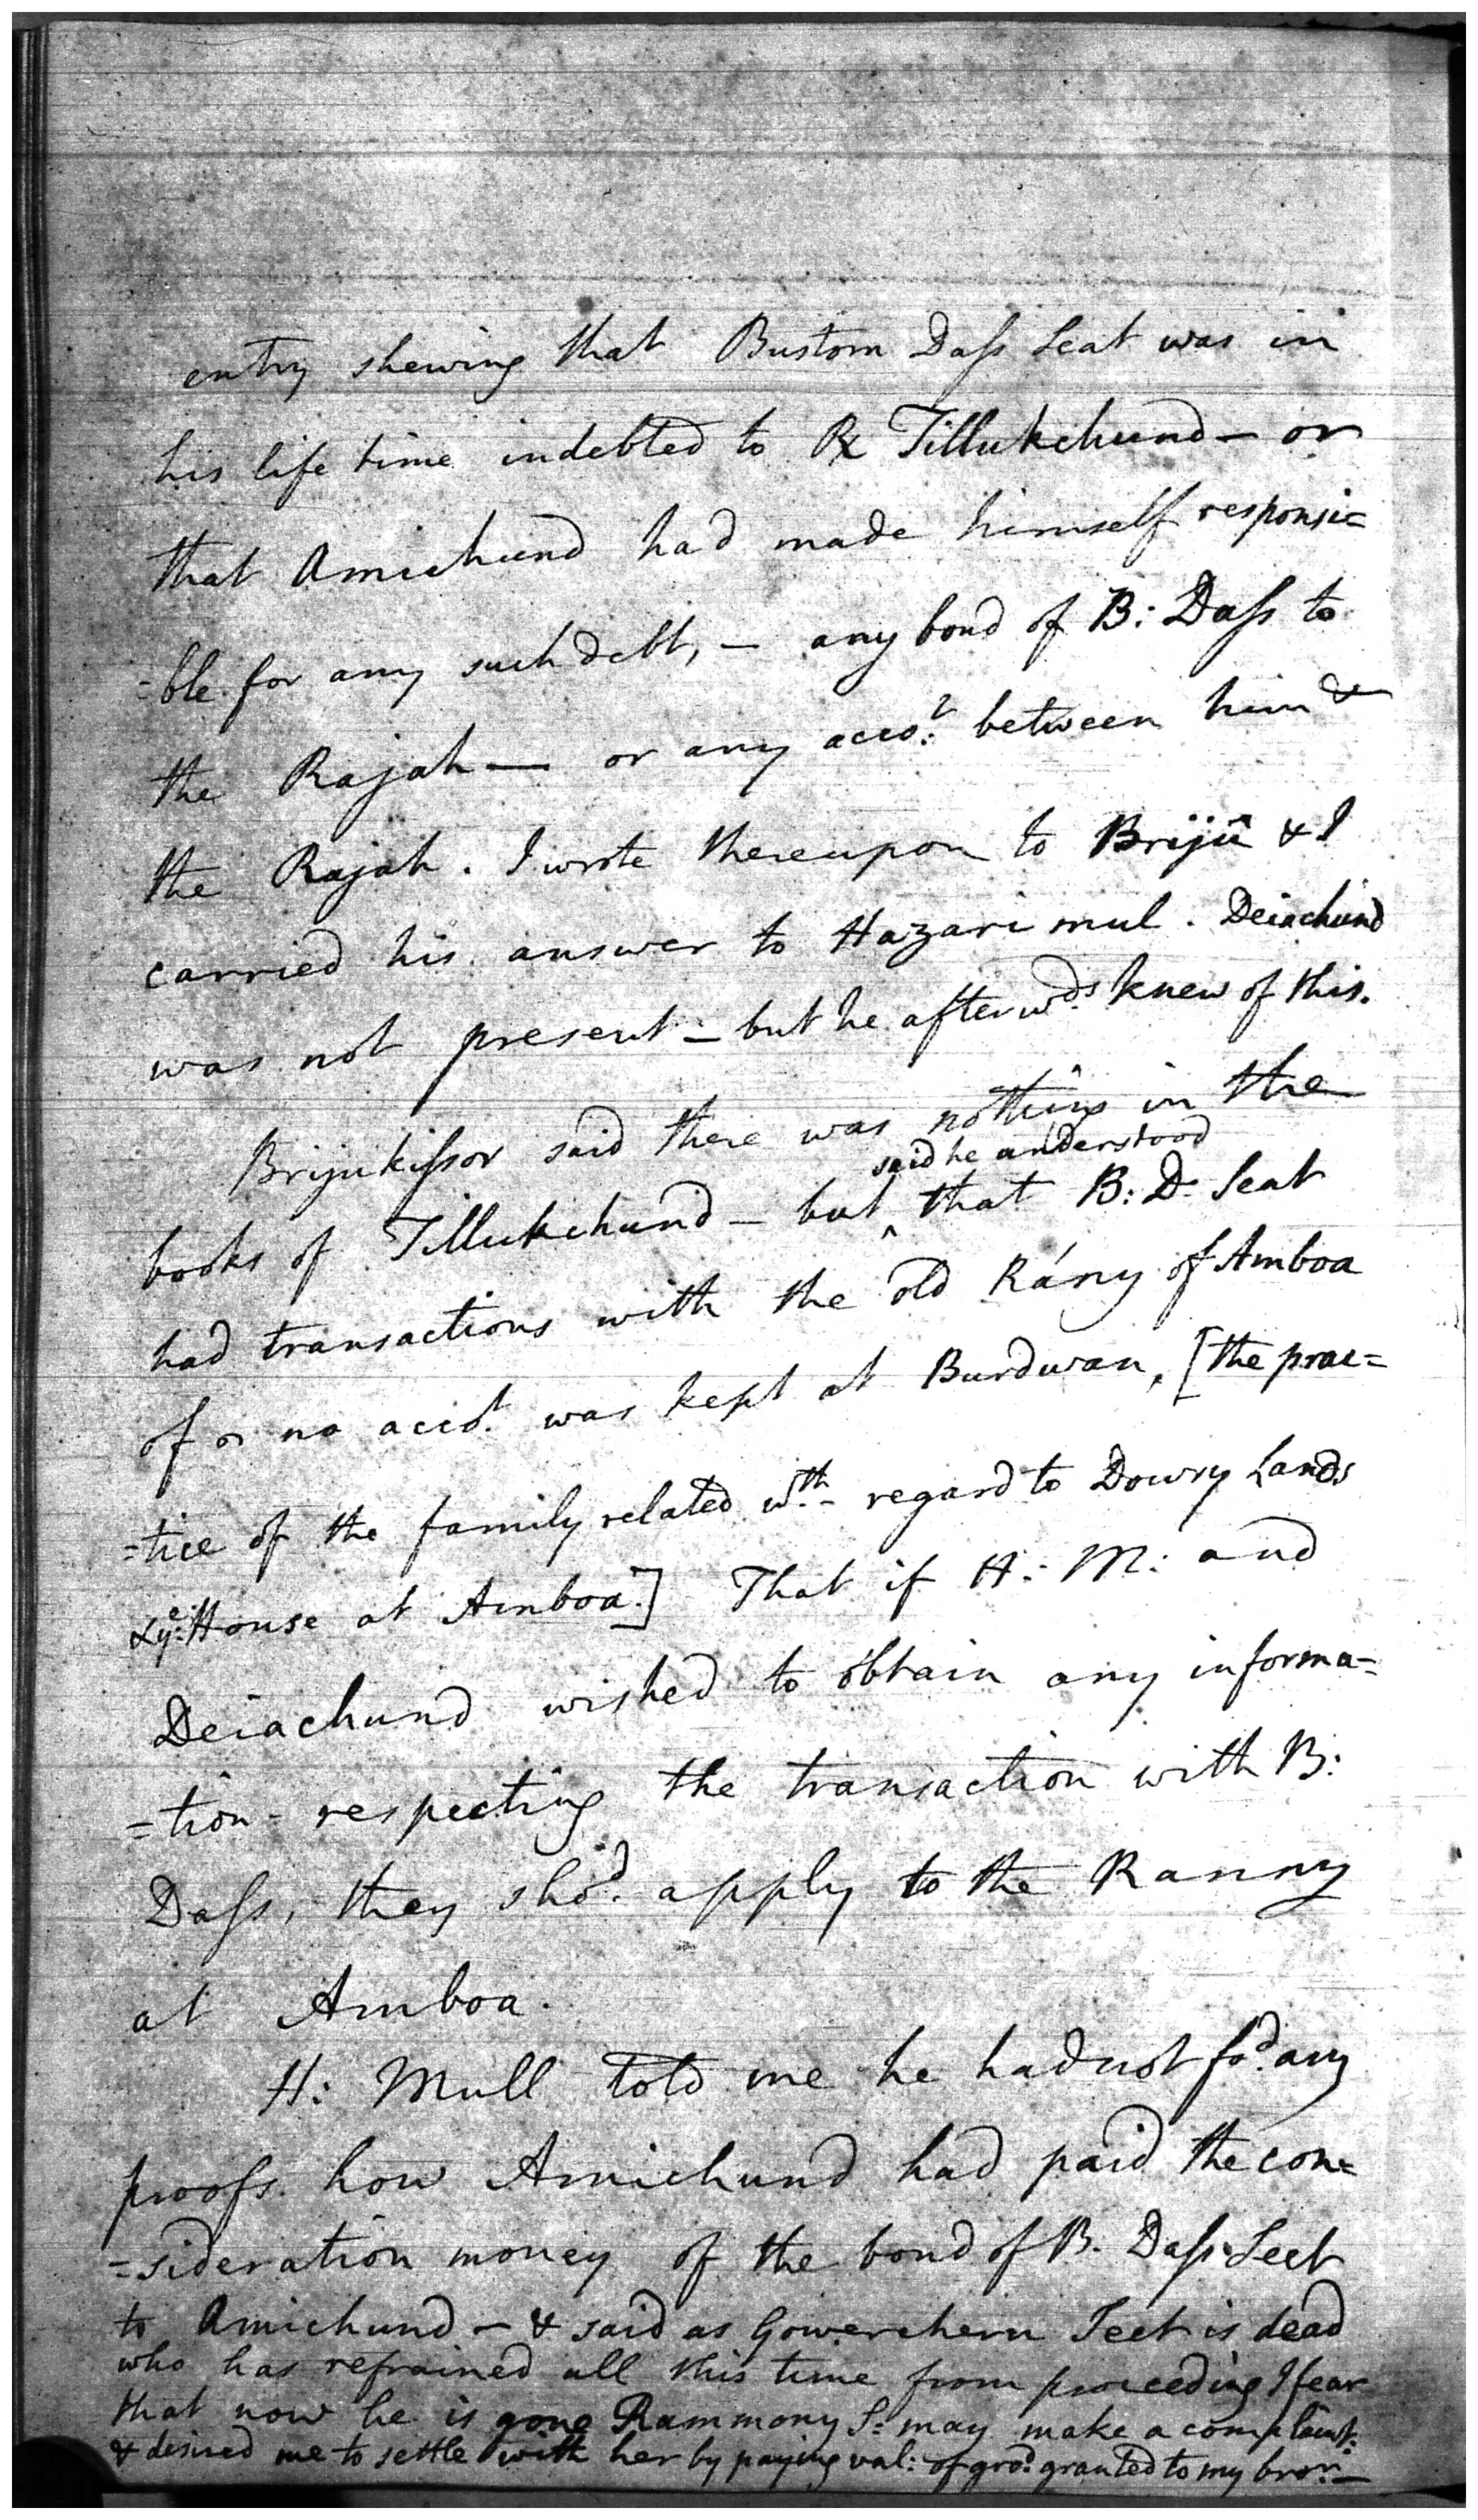 entry shewing that Bustom Dass Seat was in
his life time indebted to R Tillukchund - or
that Amichund had made himself responsi=
=ble for any such debt, - any bond of B: Dass to
the Rajah — or any acco:t between him &
the Rajah. I wrote thereupon to Briju & I
carried his answer to Hazari mul. Deiachund
was not present - but he afterwds knew of this.
Brijukissor said there was nothing in the
said he understood
books of Tillukchund - but ^ that B: D- Seat
had transactions with the old Rány of Amboa
of no acco.t was kept at Burdwan, [the prac=
=tice of the family related wth regard to Dowry Lands
& ye: House at Amboa.] That if H: M: and
Deiachund wished to obtain any informa=
=tion - respecting the transaction with B:
Dass, they sho.d apply to the Ranny
at Amboa.
H: Mull told me he had not fo.d any
proofs how Amichund had paid the con=
=sideration money of the bond of B. Dass Seet
to Amichund - & said as Gowerchern Seet is dead
who has refrained all this time from proceeding I fear
that now he is gone Rammony S: may make a complaint.
& desired me to settle with her by paying val: of gro.d granted to my bror: —